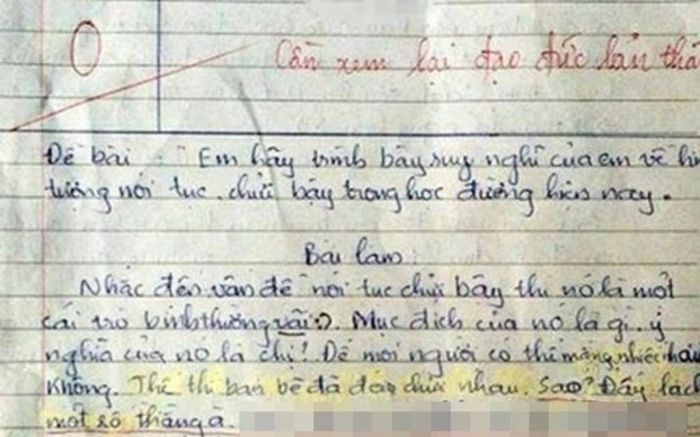 0
Cần xem lại đạo đức bản thâ
Đề bài : "Em hãy trình bày suy nghĩ của em về hiệ
tượng nói tục, chửi bậy trong học đường hiện nay.
Bài làm
Nhắc đến vấn đề nói tục chửi bậy thì nó là một
cái trò bình thường vãi :). Mục đích của nó là gì, ý
nghĩa của nó là chi! Để mọi người có thể mắng nhiếc nhau
không. Thế thì bạn bè đã đáo chửi nhau. Sao? Đấy là
một số thằng à.